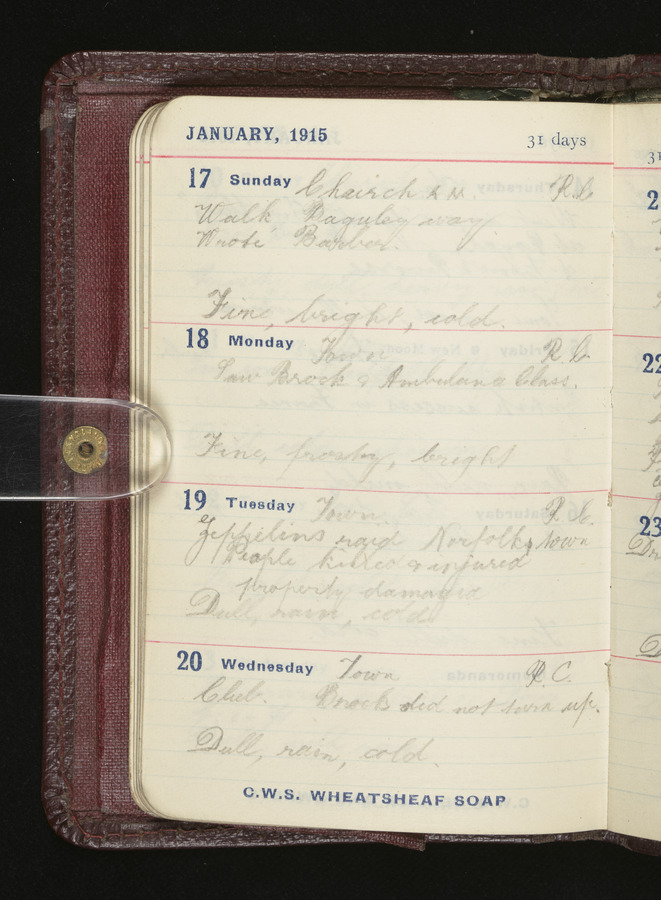 JANUARY, 1915 31 days
17 Sunday Chairch & M. R.C.
Walk Baguley way
Wrote Barber.
Fine, bright, cold.
18 Monday Town R.C.
Saw Brock & Ambulance Class.
Fine, frosty, bright
19 Tuesday Town. R.C.
Zeppelins raid Norfolk, town
People killed & injured
property damaged
Dull, rain, cold
20 Wednesday Town R.C.
Club. Brock did not turn up.
Dull, rain, cold.
C.W.S. WHEATSHEAF SOAP
31
2
22
23